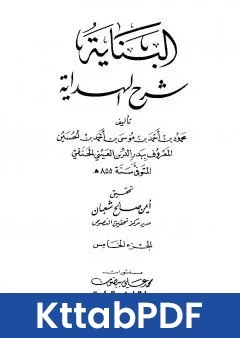 البناية
شرح الهداية
تأليف
محمود بن أحمد بن موسى بن أحمد بن الحسين
المعروف ببدر الدين العيني الحنفي
المتوفى سنة ٨٥٥ هـ
تحقيق
أيمن صالح شعبان
الجزء الخامس
منشورات
محمد علي بيضون
KttabPDF